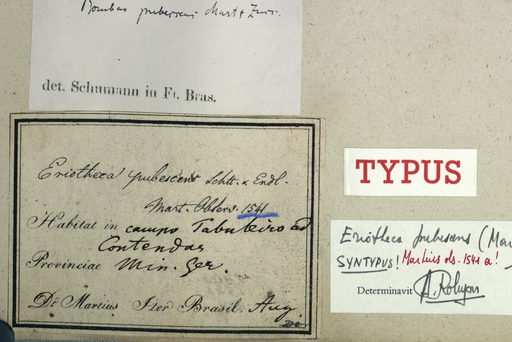 Bombax pubescens Mart & Zucc.
det. Schumann in Fl. Bras.
Eriotheca pubescens Schtt. & Endl.
Mart. Observ. 1541
Habitat in campo Tabuleiro ad
Contendas
Provinciae Min. Ger.
Dr Martius Iter Brasil. Aug.
TYPUS
Eriotheca pubescens (Mar
SYNTYPUS! Martius obs. 1541 a!
Determinavit A. Robyns